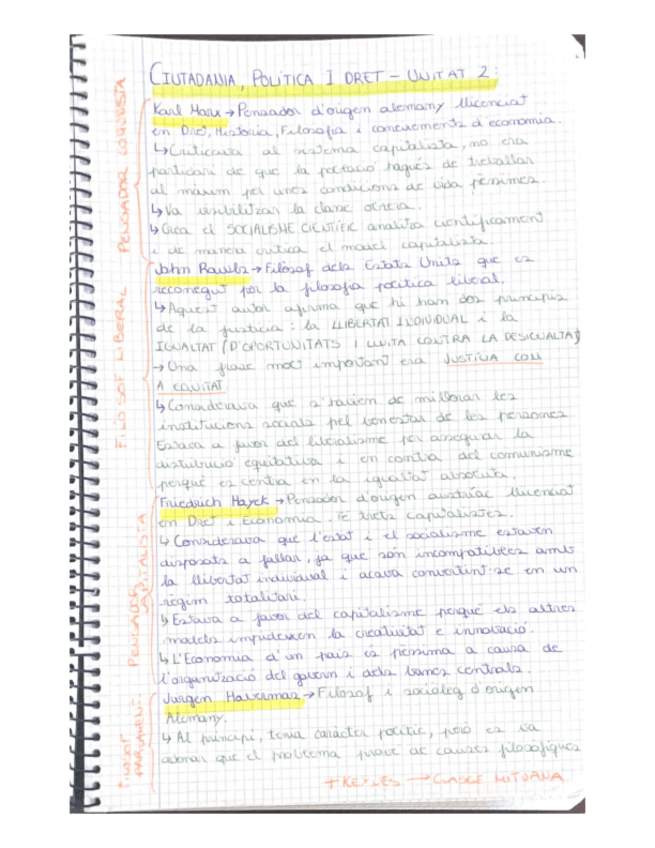 CIUTADANIA, POLÍTICA I DRET - UNITAT 2:
Karl Marx → Pensador d'origen alemany llicenciat
en Dret, Història, Filosofia i coneixements d'economia.
↳ Criticava al sistema capitalista, no era
partidari de que la població hagués de treballar
al màxim per unes condicions de vida pèssimes.
↳ Va visibilitzar la classe obrera.
↳ Crea el SOCIALISME CIENTÍFIC analitza científicament
i de manera crítica el model capitalista
John Rawls → Filòsof dels Estats Units que és
reconegut per la filosofia política liberal.
↳ Aquest autor afirma que hi han dos principis
de la justícia: la LLIBERTAT INDIVIDUAL i la
IGUALTAT (D'OPORTUNITATS I LLUITA CONTRA LA DESIGUALTAT)
→ Una frase molt important era JUSTÍCIA COM
A EQUITAT.
↳ Considerava que s'havien de millorar les
institucions socials pel benestar de les persones
Estava a favor del liberalisme per assegurar la
distribució equitativa i en contra del comunisme
perquè es centra en la igualtat absoluta.
Friedrich Hayek → Pensador d'origen austríac llicenciat
en Dret i Economia. Té trets capitalistes.
↳ Considerava que l'estat i el socialisme estaven
disposats a fallar, ja que són incompatibles amb
la llibertat individual i acaba convertint-se en un
règim totalitari.
↳ Estava a favor del capitalisme perquè els altres
models impedeixen la creativitat e innovació.
↳ L'Economia d'un país és pèssima a causa de
l'organització del govern i dels bancs centrals.
Jurgen Habermas → Filòsof i sociòleg d'origen
Alemany.
↳ Al principi, tenia caràcter polític, però es va
adonar que el problema prové de causes filosòfiques
+ KEYNES → CLASSE MITJANA
PENSADOR COMUNISTA
FILÒSOF LIBERAL
PENSADOR
CAPITALISTA
FILÒSOF